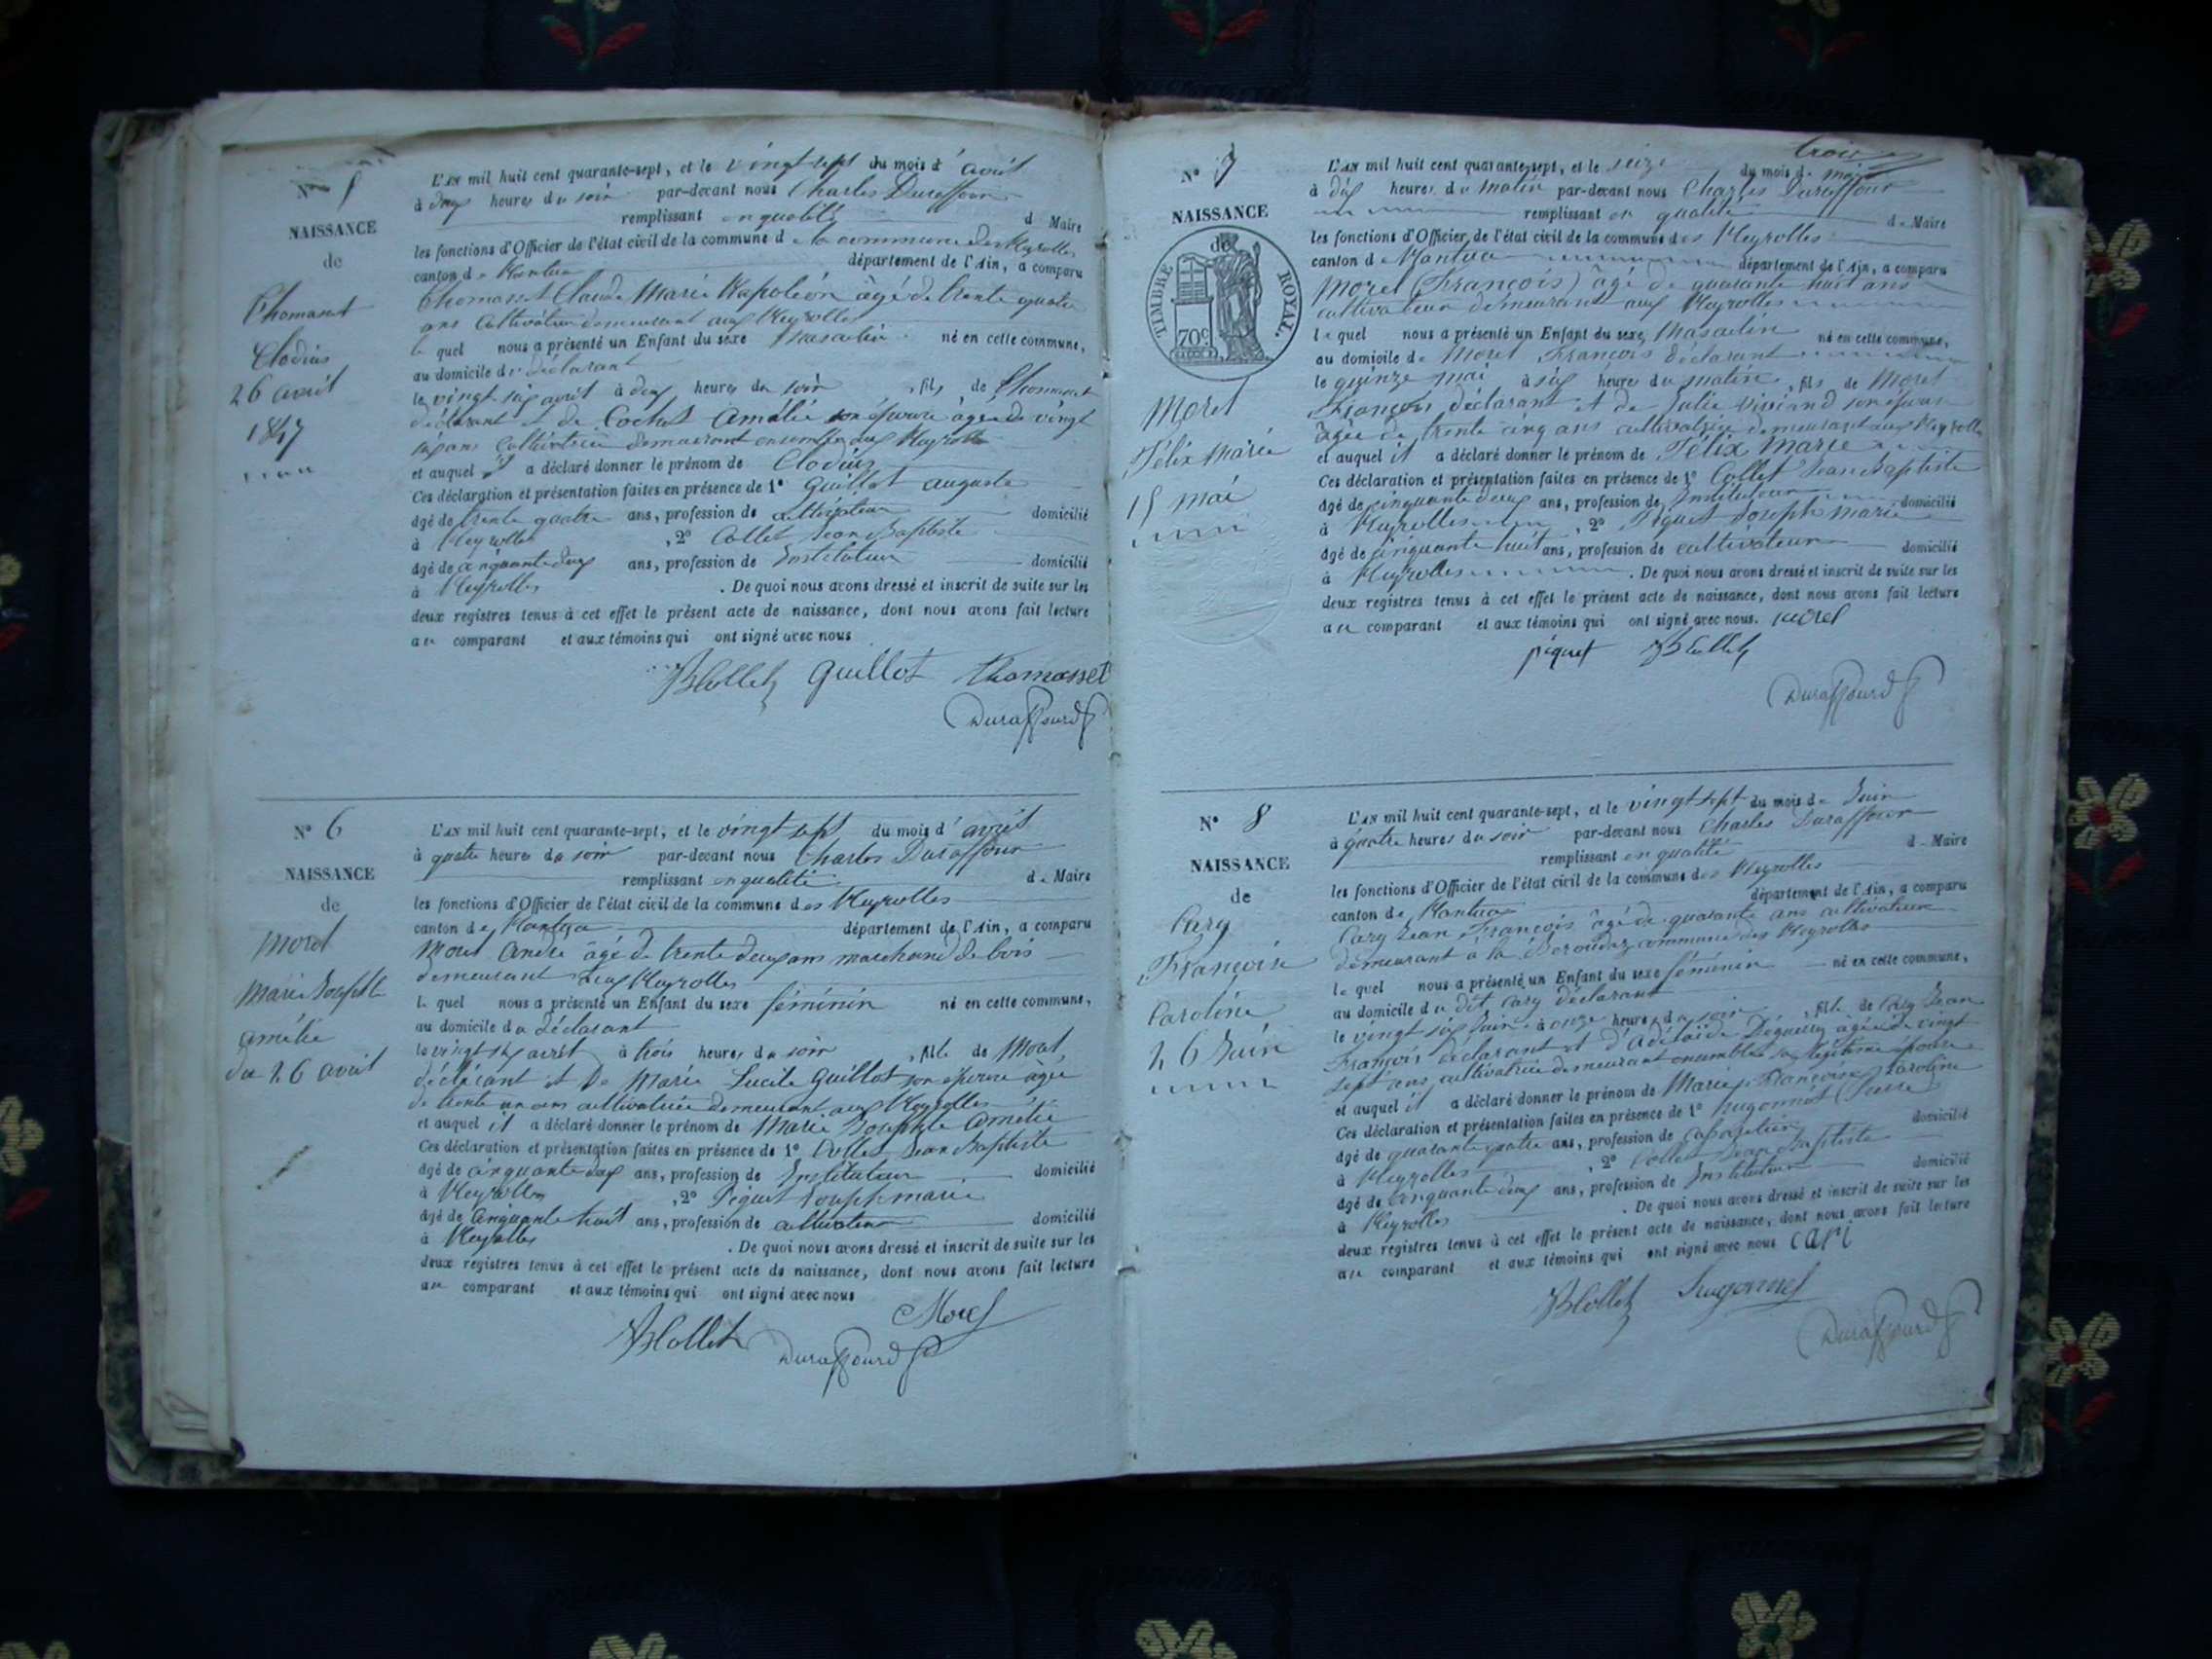 N° 5
NAISSANCE
de
Thomasset
Clodius
26 avril
1847
L'AN mil huit cent quarante-sept, et le vingt sept du mois d'avril
à deux heures du soir par-devant nous Charles Duraffour
remplissant en qualité de Maire
les fonctions d'Officier de l'état civil de la commune d
canton de Nantua département de l'Ain, a comparu
Thomasset Claude Marie Napoléon âgé de trente quatre
ans Cultivateur demeurant aux Neyrolles
le quel nous a présenté un Enfant du sexe Masculin né en cette commune,
au domicile du déclarant
le vingt six avril à deux heures du soir, fils de Thomasset
déclarant et de Cochet Amélie son épouse âgée de vingt
six ans Cultivatrice demeurant ensemble aux Neyrolles
et auquel il a déclaré donner le prénom de Clodius
Ces déclaration et présentation faites en présence de 1° Guillot auguste
âgé de trente quatre ans, profession de cultivateur domicilié
à Neyrolles, 2° Collet Jean Baptiste
âgé de cinquante deux ans, profession de Instituteur domicilié
à Neyrolles. De quoi nous avons dressé et inscrit de suite sur les
deux registres tenus à cet effet le présent acte de naissance, dont nous avons fait lecture
au comparant et aux témoins qui ont signé avec nous
JBCollet Guillot thomasset
Duraffourd
N° 6
NAISSANCE
de
Morel
Marie Josephte
Amélie
du 26 avril
L'AN mil huit cent quarante-sept, et le vingt sept du mois d'avril
à quatre heures du soir par-devant nous Charles Duraffour
remplissant en qualité de Maire
les fonctions d'Officier de l'état civil de la commune des Neyrolles
canton de Nantua département de l'Ain, a comparu
Morel André âgé de trente deux ans marchand de bois
demeurant aux Neyrolles
le quel nous a présenté un Enfant du sexe féminin né en cette commune,
au domicile du déclarant
le vingt six avril à trois heures du soir, fille de Morel
déclarant et de Marie Lucile Guillot son épouse âgée
de trente un ans cultivatrice demeurant aux Neyrolles
et auquel il a déclaré donner le prénom de Marie Josephte Amélie
Ces déclaration et présentation faites en présence de 1° Collet Jean Baptiste
âgé de cinquante deux ans, profession de Instituteur domicilié
à Neyrolles, 2° Piquet Joseph marie
âgé de Cinquante huit ans, profession de cultivateur domicilié
à Neyrolles. De quoi nous avons dressé et inscrit de suite sur les
deux registres tenus à cet effet le présent acte de naissance, dont nous avons fait lecture
au comparant et aux témoins qui ont signé avec nous
Morel
JBCollet Duraffourd
trois
N° 7
NAISSANCE
de
TIMBRE ROYAL.
70c
Morel
Félix Marie
15 mai
L'AN mil huit cent quarante-sept, et le seize du mois de mai
à dix heures du matin par-devant nous Charles Duraffour
remplissant en qualité de Maire
les fonctions d'Officier de l'état civil de la commune des Neyrolles
canton de Nantua département de l'Ain, a comparu
Morel (François) âgé de quarante huit ans
cultivateur demeurant aux Neyrolles
le quel nous a présenté un Enfant du sexe Masculin né en cette commune,
au domicile de Morel François déclarant
le quinze mai à six heures du matin, fils de Morel
François déclarant et de Julie Viviand son épouse
âgée de trente cinq ans cultivatrice demeurant aux Neyrolles
et auquel il a déclaré donner le prénom de Félix Marie
Ces déclaration et présentation faites en présence de 1° Collet Jean Baptiste
âgé de cinquante deux ans, profession de Instituteur domicilié
à Neyrolles, 2° Piquet Joseph Marie
âgé de cinquante huit ans, profession de cultivateur domicilié
à Neyrolles. De quoi nous avons dressé et inscrit de suite sur les
deux registres tenus à cet effet le présent acte de naissance, dont nous avons fait lecture
au comparant et aux témoins qui ont signé avec nous. morel
piquet JBCollet
Duraffourd
N° 8
NAISSANCE
de
Cary
Françoise
Caroline
26 Juin
L'AN mil huit cent quarante-sept, et le vingt sept du mois de Juin
à quatre heures du soir par-devant nous Charles Duraffour
remplissant en qualité de Maire
les fonctions d'Officier de l'état civil de la commune des Neyrolles
canton de Nantua département de l'Ain, a comparu
Cary Jean François âgé de quarante ans cultivateur
demeurant à la commune des Neyrolles
le quel nous a présenté un Enfant du sexe féminin né en cette commune,
au domicile du dit Cary déclarant
le vingt six Juin à onze heures du soir, fille de Cary Jean
François déclarant et d'Adélaïde âgée de vingt
sept ans cultivatrice demeurant ensemble sa légitime épouse
et auquel il a déclaré donner le prénom de Marie Françoise Caroline
Ces déclaration et présentation faites en présence de 1° hugonnet Pierre
âgé de quarante quatre ans, profession de cabaretier domicilié
à Neyrolles, 2° Collet Jean Baptiste
âgé de cinquante deux ans, profession de Instituteur domicilié
à Neyrolles. De quoi nous avons dressé et inscrit de suite sur les
deux registres tenus à cet effet le présent acte de naissance, dont nous avons fait lecture
au comparant et aux témoins qui ont signé avec nous cari
JBCollet hugonnet
Duraffourd